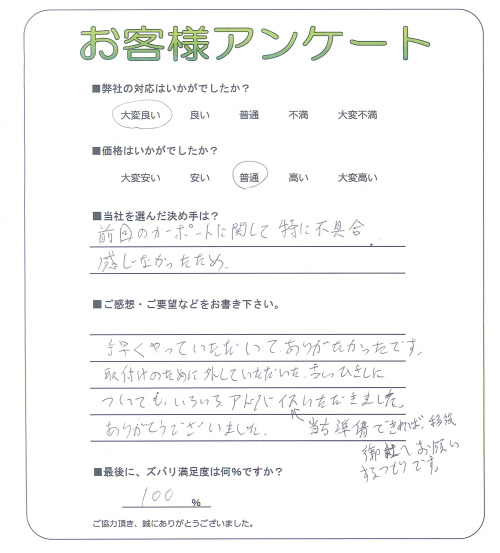 お客様アンケート
■弊社の対応はいかがでしたか？
大変良い 良い 普通 不満 大変不満
■価格はいかがでしたか？
大変安い 安い 普通 高い 大変高い
■当社を選んだ決め手は？
前回のカーポートに関して特に不具合
感じなかったため。
■ご感想・ご要望などをお書き下さい。
手早くやっていただいて、ありがたかったです。
取付けのために外していただいた、ひさしに
ついても、いろいろ、アドバイスいただきました。
ありがとうございました。
準備できれば、
御社へお願い
するつもりです。
■最後に、ズバリ満足度は何%ですか？
100 %
ご協力頂き、誠にありがとうございました。